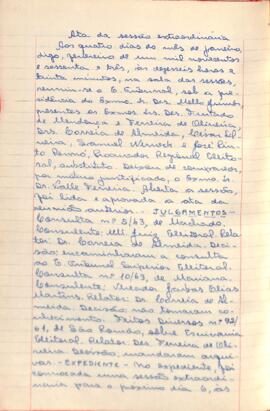 Ata da sessão extraordinária
Aos quatro dias do mês de janeiro,
digo, fevereiro de um mil novecentos
e sessenta e três, às dezesseis horas e
trinta minutos, na sala das sessões,
reuniu-se o E. Tribunal, sob a pre-
sidência do Exmo. Sr. Des. Mello Júnior,
presentes os Exmos. Srs. Des. Furtado
de Mendonça e Ferreira de Oliveira,
Drs. Correia de Almeida,
e José Pin-
to Procurador Regional Eleito-
ral, substituto. Deixou de comparecer,
por motivo justificado, o Exmo. Sr.
Dr. Valle Ferreira. Aberta a sessão,
foi lida e aprovada a ata da
reunião anterior. JULGAMENTOS-
Consulta nº 8/63, de Machado.
Consulente: MM. Juiz Eleitoral. Rela-
tor: Dr. Correia de Almeida. Deci-
são: encaminharam a consulta
ao E. Tribunal Superior Eleitoral.
Consulta nº 10/63, de Mariana.
Consulente: Vereador Jarbas Elias
Martins. Relator: Dr. Correia de Al-
meida. Decisão: não tomaram co-
nhecimento. Feitos Diversos nº 92/
61, de São Romão, sobre Escrivania
Eleitoral. Relator: Des. Ferreira de Oli-
veira. Decisão: mandaram arqui-
var. - EXPEDIENTE - No expediente, foi
convocada uma sessão extraordi-
nária para o próximo dia 6, às